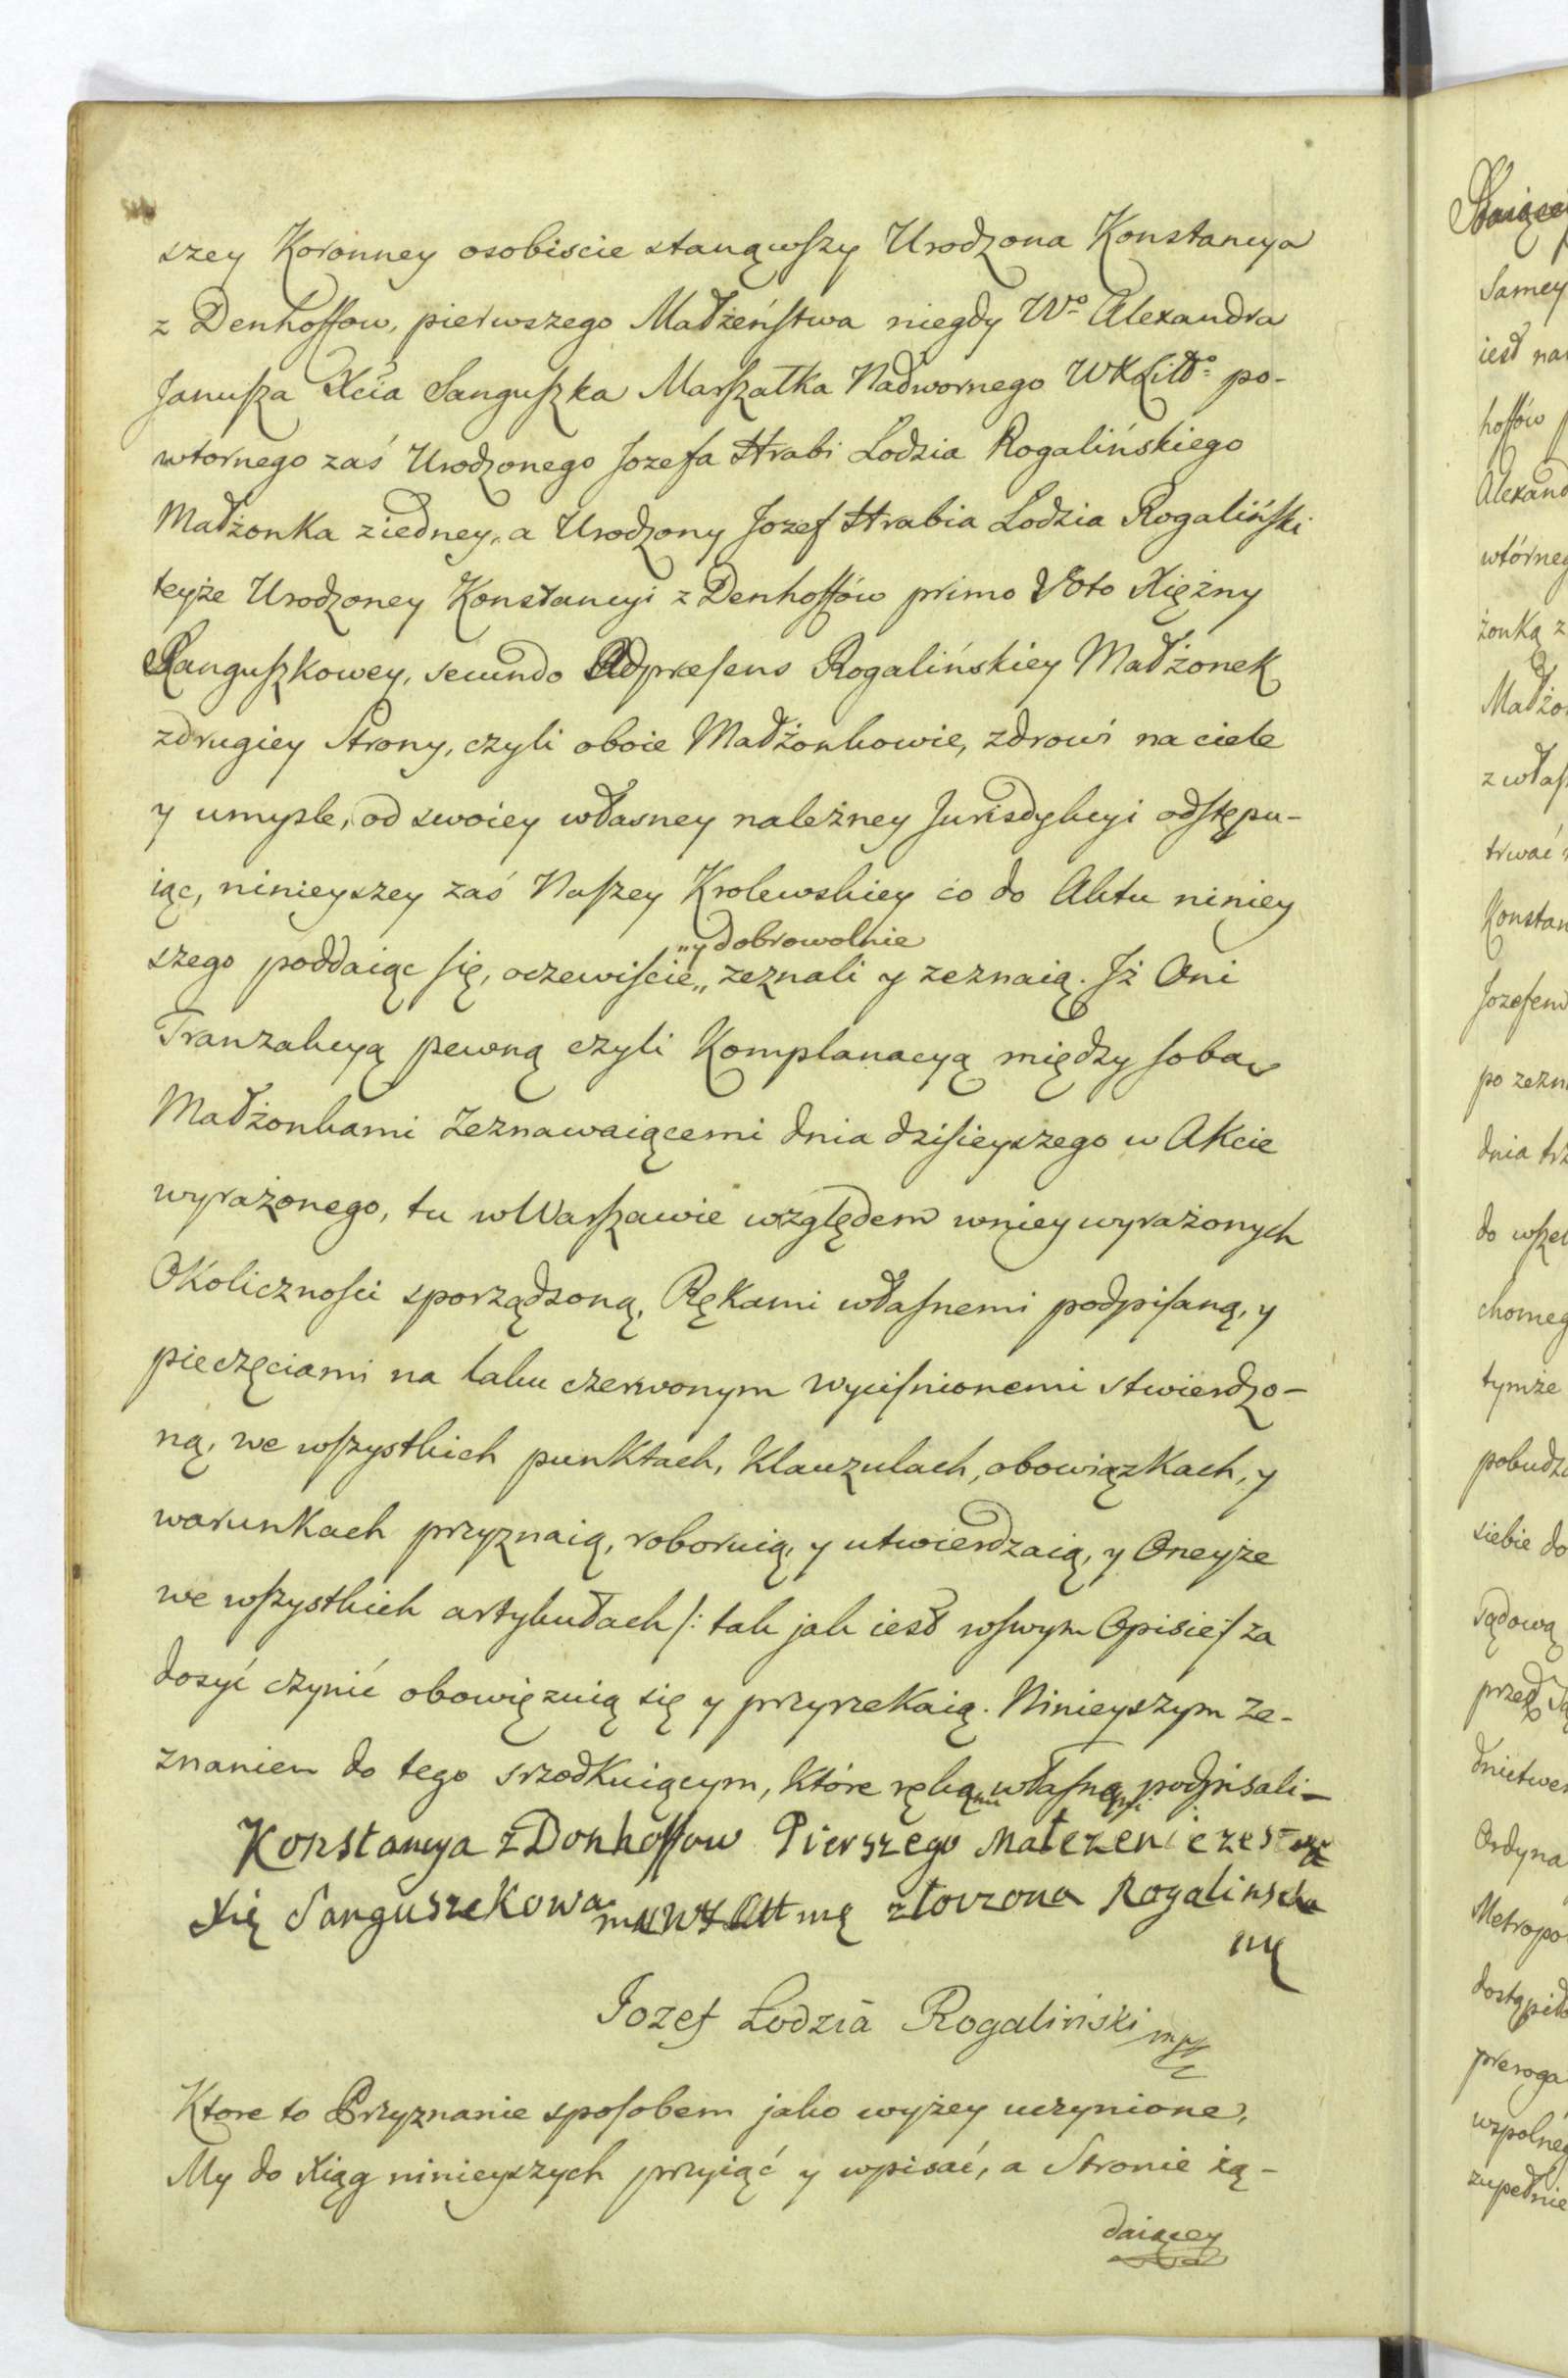 szey Koronney osobiscie stanąwſzy Urodzona Konstancya
z Denhoffow, pierwszego Małżeńſtwa niegdy Wo Alexandra
Januſza Xcia Sanguſzka Marſzałka Nadwornego WXLitto: po-
wtornego zaś Urodzonego Jozefa Hrabi Lodzia Rogalińskiego
Małżonka ziedney, a Urodzony Jozef Hrabia Lodzia Rogalińſki
teyże Urodzoney Konstancyi z Denhoffów primo Voto Xiężny
Sanguſzkowey, secundo Adpræſens Rogalińskiey Małżonek
zdrugiey Strony, czyli oboie Małżonkowie, zdrowi na ciele
y umyśle, od swoiey własney należney Jurisdykcyi odſtępu-
iąc, ninieyszey zaś Naſzey Krolewskiey co do Aktu niniey
„y dobrowolnie
szego poddaiąc ſię, oczewiſcie„ zeznali y zeznaią. Jż Oni
Tranzakcyą pewną czyli Komplanacyą między ſobą
Małżonkami Zeznawaiącemi dnia dziſieyszego w Akcie
wyrażonego, tu wWarſzawie względem wniey wyrażonych
Okolicznoſci sporządzoną, Rękami właſnemi podpiſaną, y
pieczęciami na laku czerwonym wyciſnionemi stwierdzo-
ną, we wſzystkich punktach, Klauzulach, obowiązkach, y
warunkach przyznaią, roboruią, y utwierdzaią, y Oneyże
we wſzystkich artykułach /: tak jak iest wſwym Opisie :/ za
dosyć czynić obowięzuią się y przyrzekaią. Ninieyszym ze-
znaniem do tego srzodkuiącym, które ręką własną podpisali-
Konstancya z Donhoffow Pierszego
Xię Sanguszekowa złorzona Rogalinscka
mp
Jozef Łodzia Rogaliński mp
Ktore to Przyznanie spoſobem jako wyżey uczynione,
My do Xiąg ninieyszych przyiąć y wpisać, a Stronie żą-
daiącey
Samey
iest na
hoffów
Alexand
wtórneg
żonką z
Małżo
z właſ
trwać
Konstan
Jozefem
po zezn
dnia trz
do wſzel
chomeg
tymże
pobudz
siebie do
sądową
przed Są
dnictwem
Ordyna
Metropo
dostąpiło
preroga
wspolneg
zupełnie